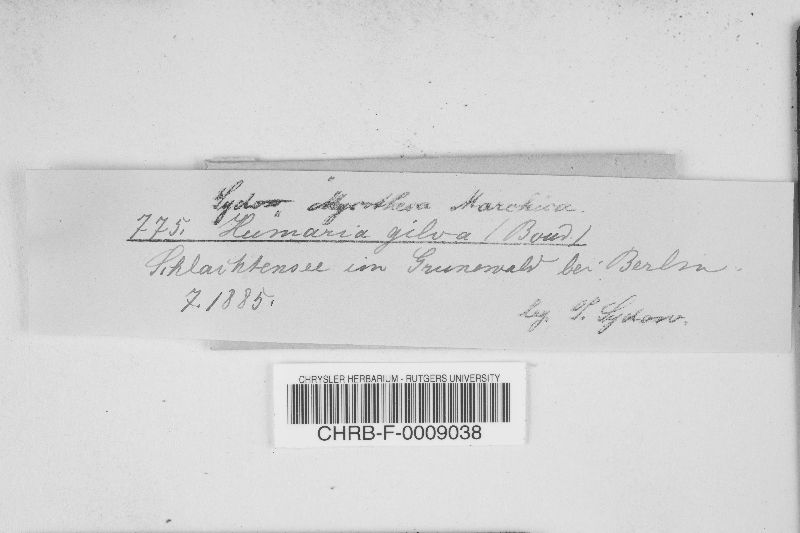 Sydow Mycotheca Marchica.
775. Humaria gilva (Boud.)
Schlachtensee im Grunewald bei Berlin.
7. 1885.
leg. P. Sydow.
CHRYSLER HERBARIUM - RUTGERS UNIVERSITY
CHRB-F-0009038